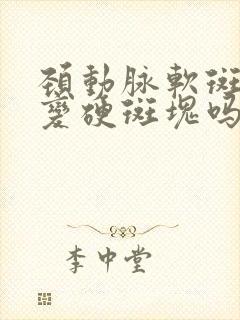 頚動脉軟斑
變硬斑塊吗
李中堂